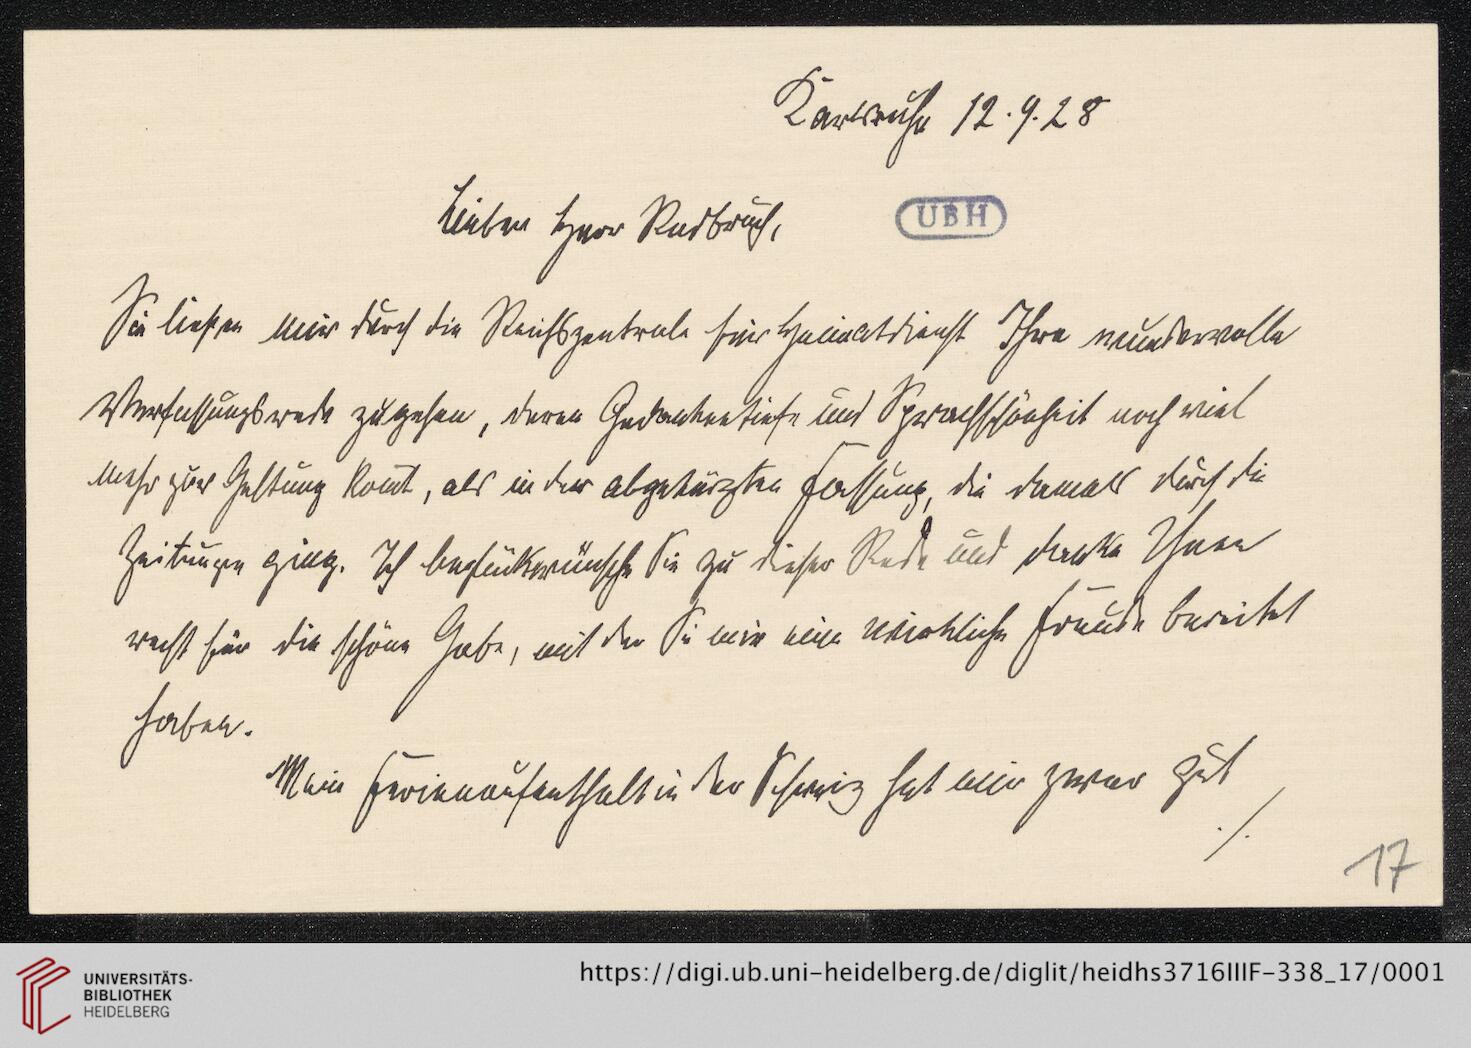 Karlsruhe 12.9.28
Lieber Herr Radbruch,
UBH
Sie ließen mir durch die Reichszentrale für Heimatdienst Ihre wundervolle
Verfassungsrede zugehen, deren Gedankentiefe und Sprachschönheit noch viel
mehr zur Geltung kom̄t, als in der abgekürzten Fassung, die damals durch die
Zeitungen ging. Ich beglückwünsche Sie zu dieser Rede und danke Ihnen
recht für die schöne Gabe, mit der Sie mir eine wirkliche Freude bereitet
haben.
Mein Ferienaufenthalt in der Schweiz hat mir zwar gut
./.
17
UNIVERSITÄTS-
BIBLIOTHEK
HEIDELBERG
https://digi.ub.uni-heidelberg.de/diglit/heidhs3716IIIF-338_17/0001